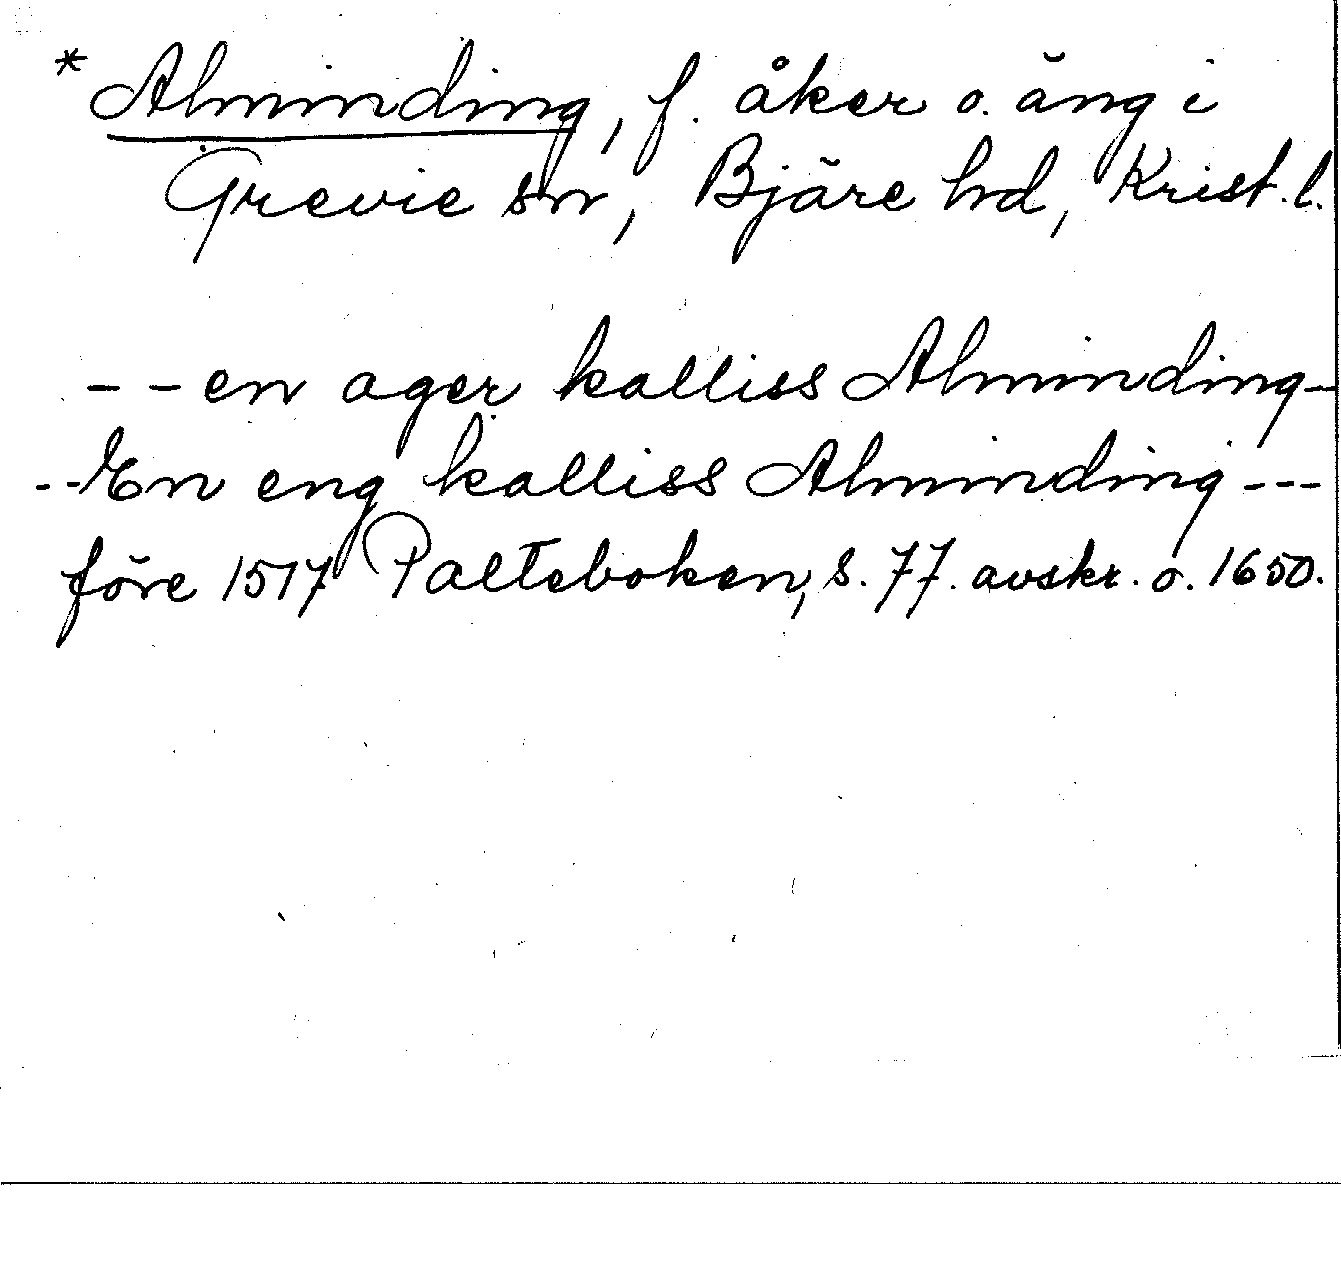 * Alminding, f. åker o. äng i
Grevie sn, Bjäre hd, Krist. l.
- - en ager kalliss Alminding -
- - En eng kalliss Alminding - - -
före 1517 Palteboken, s. 77. avskr. o. 1650.